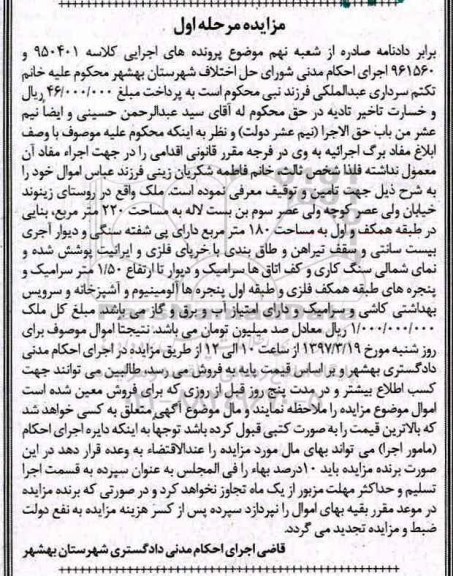 مزایده مرحله اول
برابر دادنامه صادره از شعبه نهم موضوع پرونده های اجرایی کلاسه ۹۵۰۴۰۱ و
۹۶۱۵۶۰ اجرای احکام مدنی شورای حل اختلاف شهرستان بهشهر محکوم علیه خانم
تکتم سرداری عبدالملکی فرزند نبی محکوم است به پرداخت مبلغ ۴۶/۰۰۰/۰۰۰ ریال
و خسارت تاخیر تادیه در حق محکوم له آقای سید عبدالرحمن حسینی و ایضا نیم
عشر من باب حق الاجرا (نیم عشر دولت) و نظر به اینکه محکوم علیه موصوف با وصف
ابلاغ مفاد برگ اجرائیه به وی در فرجه مقرر قانونی اقدامی را در جهت اجراء مفاد آن
معمول نداشته فلذا شخص ثالث، خانم فاطمه شکریان زینی فرزند عباس اموال خود را
به شرح ذیل جهت تامین و توقیف معرفی نموده است. ملک واقع در روستای زینوند
خیابان ولی عصر کوچه ولی عصر سوم بن بست لاله به مساحت ۲۲۰ متر مربع، بنایی
در طبقه همکف و اول به مساحت ۱۸۰ متر مربع دارای پی شفته سنگی و دیوار آجری
بیست سانتی و سقف تیرآهن و طاق بندی با خرپای فلزی و ایرانیت پوشش شده و
نمای شمالی سنگ کاری و کف اتاق ها سرامیک و دیوار تا ارتفاع ۱/۵۰ متر سرامیک و
پنجره های طبقه همکف فلزی و طبقه اول پنجره ها آلومینیوم و آشپزخانه و سرویس
بهداشتی کاشی و سرامیک و دارای امتیاز آب و برق و گاز می باشد. مبلغ کل ملک
۱/۰۰۰/۰۰۰/۰۰۰ ریال معادل صد میلیون تومان می باشد. نتیجتا اموال موصوف برای
روز شنبه مورخ ۱۳۹۷/۳/۱۹ از ساعت ۱۰ الی ۱۲ از طریق مزایده در اجرای احکام مدنی
دادگستری بهشهر و بر اساس قیمت پایه به فروش می رسد، طالبین می توانند جهت
کسب اطلاع بیشتر و در مدت پنج روز قبل از روزی که برای فروش معین شده است
اموال موضوع مزایده را ملاحظه نمایند و مال موضوع آگهی متعلق به کسی خواهد شد
که بالاترین قیمت را به صورت کتبی قبول کرده باشد توجها به اینکه دایره اجرای احکام
(مامور اجرا) می تواند بهای مال مورد مزایده را عندالاقتضاء به وعده قرار دهد در این
صورت برنده مزایده باید ۱۰درصد بهاء را فی المجلس به عنوان سپرده به قسمت اجرا
تسلیم و حداکثر مهلت مزبور از یک ماه تجاوز نخواهد کرد و در صورتی که برنده مزایده
در موعد مقرر بقیه بهای اموال را نپردازد سپرده پس از کسر هزینه مزایده به نفع دولت
ضبط و مزایده تجدید می گردد.
قاضی اجرای احکام مدنی دادگستری شهرستان بهشهر